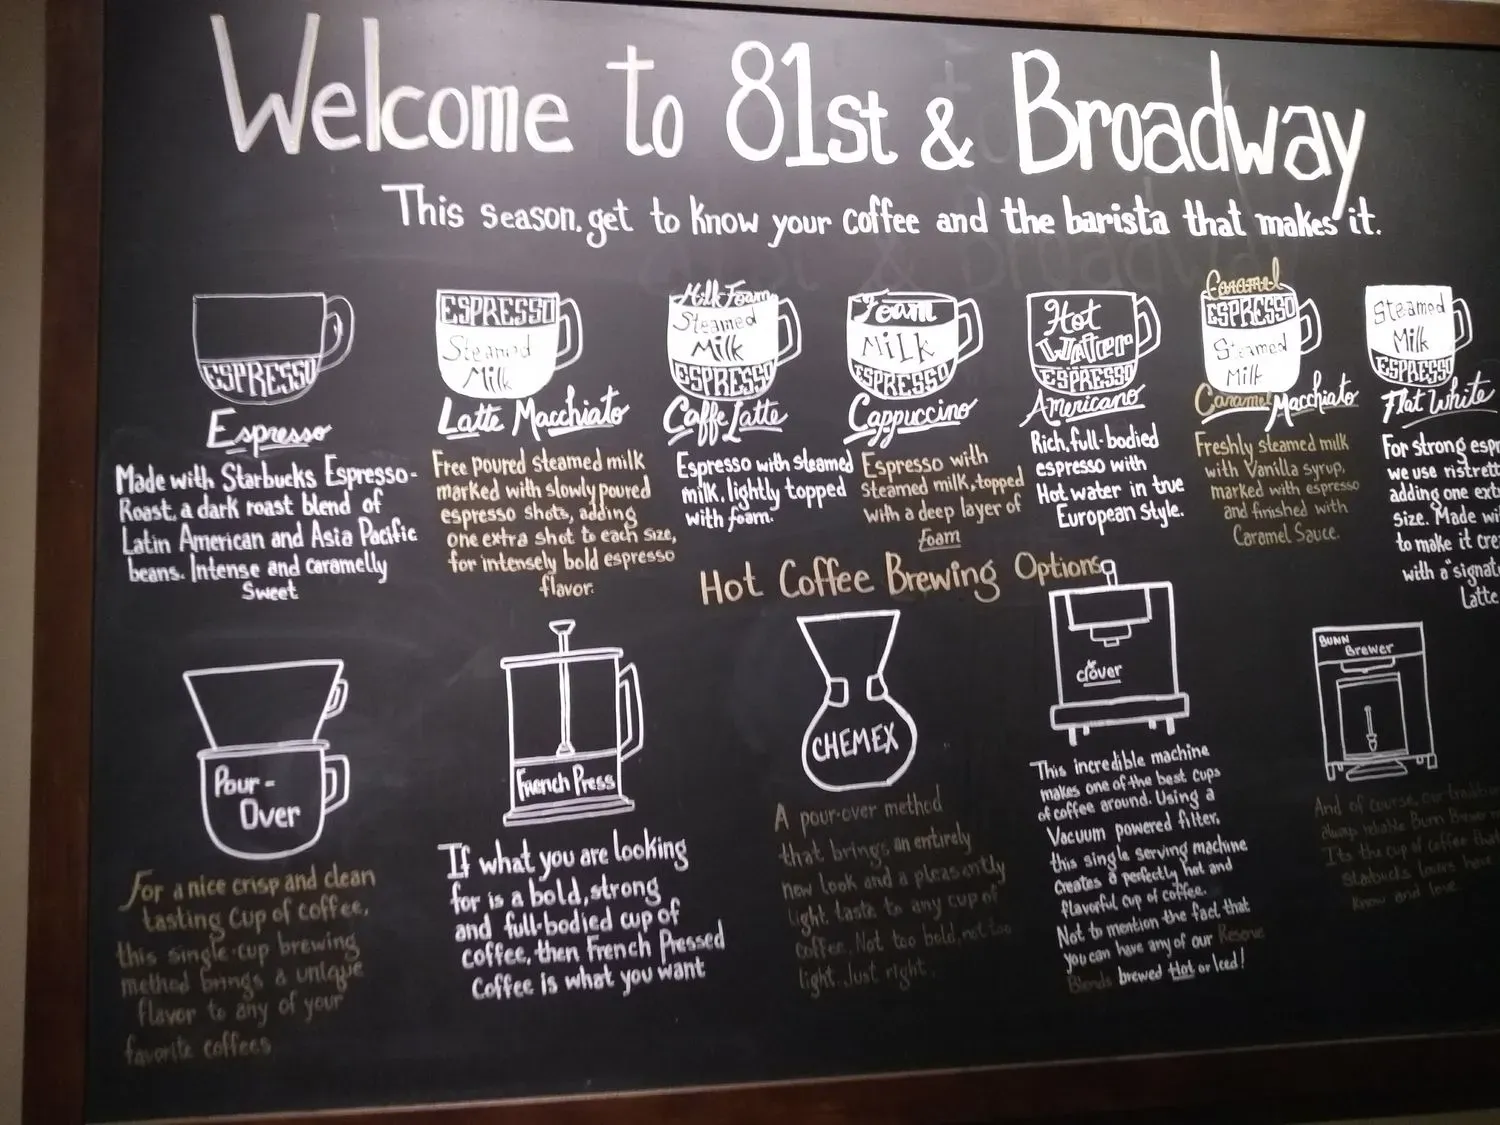 Welcome to 81st & Broadway
This season. get to know your coffee and the barista that makes it.
ESPRESSO
Espresso
Made with Starbucks Espresso-
Roast, a dark roast blend of
Latin American and Asia Pacific
beans. Intense and caramelly
Sweet
ESPRESSO
Steamed
Milk
Latte Macchiato
Free poured steamed milk
marked with slowly poured
espresso shots, adding
one extra shot to each size,
for intensely bold espresso
flavor.
Milk Foam
Steamed
Milk
ESPRESSO
Caffe Latte
Espresso with steamed
milk, lightly topped
with foam.
Foam
MiLK
ESPRESSO
Cappuccino
Espresso with
Steamed milk, topped
with a deep layer of
foam
Hot
Water
ESPRESSO
Americano
Rich, full-bodied
espresso with
Hot water in true
European Style.
Caramel
ESPRESSO
Steamed
Milk
Caramel Macchiato
Freshly steamed milk
with Vanilla syrup,
marked with espresso
and finished with
Caramel Sauce.
Steamed
Milk
ESPRESSO
Flat White
For strong espr
we use ristrett
adding one ext
size. Made wi
to make it cre
with a "signat
Latte
Hot Coffee Brewing Options
Pour-
Over
For a nice crisp and clean
tasting Cup of coffee,
this single-cup brewing
method brings a unique
flavor to any of your
favorite coffees
French Press
If what you are looking
for is a bold, strong
and full-bodied cup of
coffee, then French Pressed
Coffee is what you want
CHEMEX
A pour-over method
that brings an entirely
new look and a pleasently
light taste to any cup of
coffee. Not too bold, not too
light. Just right.
clover
This incredible machine
makes one of the best cups
of coffee around. Using a
Vacuum powered filter,
this single serving machine
creates a perfectly hot and
flavorful cup of coffee.
Not to mention the fact that
you can have any of our Reserve
Blends brewed Hot or Iced!
BUNN
Brewer
And of course, our tradition
always reliable Bunn Brewer
Its the cup of coffee that
Starbucks lovers have
know and love